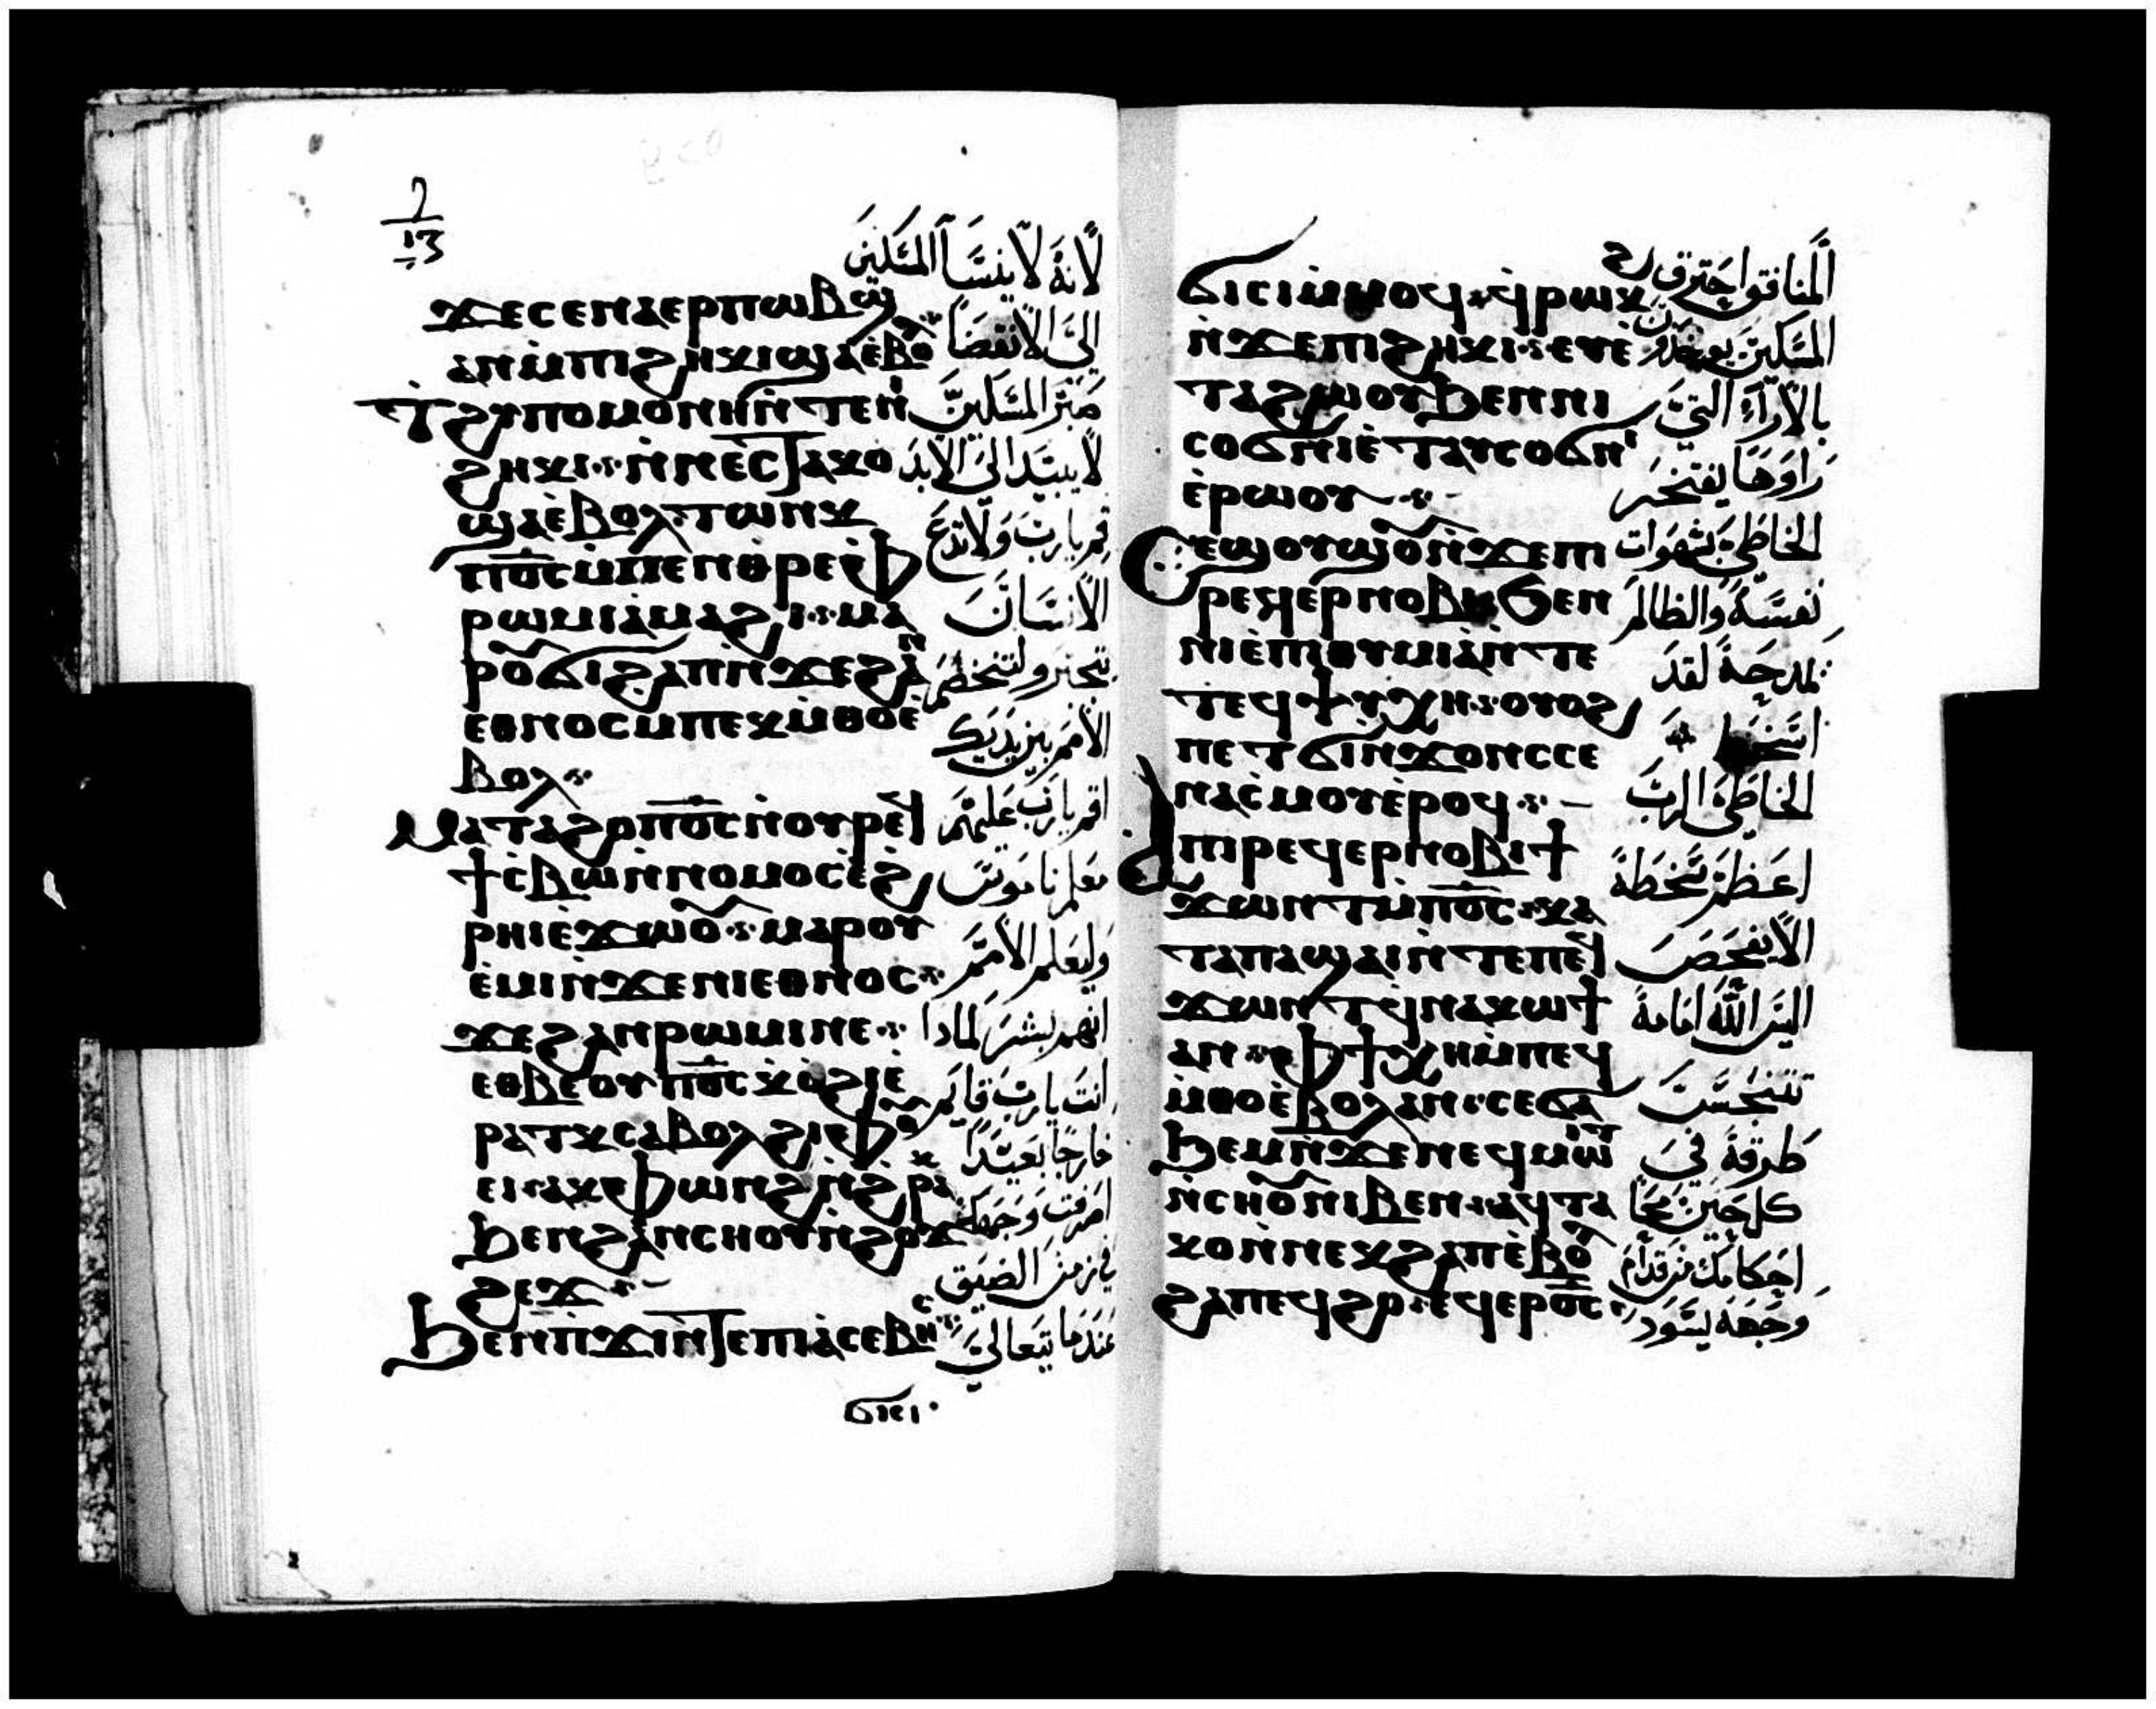 ϫⲉⲥⲉⲛⲁⲉⲣⲡⲱⲃϣ
ⲁⲛⲙ̇ⲡⲓϩⲏⲕⲓϣⲁⲉ̇ⲃⲟ
ϯϩⲩⲡⲟⲙⲟⲛⲏⲛ̇ⲧⲉⲛⲓ
ϩⲏⲕⲓ ⲛ̇ⲛⲉⲥⲧⲁⲕⲟ
ϣⲁⲉ̇ⲃⲟⲗ ⲧⲱⲛⲕ
ⲡⲟ̅ⲥ̅ⲙ̇ⲡⲉⲛⲑⲣⲉϥ
ⲣⲱⲙⲓⲁ̇ⲙⲁϩⲓ ⲙⲁ
ⲣⲟⲩϭⲓϩⲁⲡⲛ̇ϫⲉϩⲁⲛ
ⲉⲑⲛⲟⲥⲙ̇ⲡⲉⲕⲙ̇ⲑⲟⲉ̇
ⲃⲟⲗ
ⲙⲁⲧⲁϩⲟⲡⲟ̅ⲥ̅ⲛ̇ⲟⲩⲣⲉϥ
ϯⲥ̇ⲃⲱⲛ̇ⲛⲟⲙⲟⲥⲉ̇ϩ
ⲣⲏⲓⲉ̇ϫⲱⲟⲩ ⲙⲁⲣⲟⲩ
ⲉ̇ⲙⲓⲛ̇ϫⲉⲛⲓⲉⲑⲛⲟⲥ
ϫⲉϩⲁⲛⲣⲱⲙⲓⲛⲉ
ⲉⲑⲃⲉⲟⲩⲡⲟ̅ⲥ̅ⲕ̇ⲟ̇ϩⲓⲉ̇
ⲣⲁⲧⲕⲥⲁⲃⲟⲗϩⲓⲫⲟⲩ
ⲉⲓ ⲁⲕⲫⲱⲛϩⲙ̇ⲡⲉⲕϩⲣⲁ
ϧⲉⲛϩⲁⲛⲥⲏⲟⲩⲛ̇ϩⲟϫ
ϩⲉϫ
ϧⲉⲛⲡϫⲓⲛⲧⲉⲡⲓⲁ̇ⲥⲉⲃⲏⲥ
ϭⲓⲥⲓ
لاَنهُ لاَ ينسَا المسَكينَ
الىَ الاَنقضاً
صَبرَ المسَكينَ
لاَ يبيَد الىَ الاَبدَ
قم يارب وَلاَتدعَ
الاَنسَانَ
يتجبر ولتتحكم
الاَمَم بين يدَيك
اقم يارب عَليهم
معَلم ناموسَ
وليعَلم الاَمَم
انهم بشرَ لمادا
انتَ يارب قايم
خارجا بعيَداً
اصرفت وَجهك
في زمنَ الضيق
عَندما يتعَالىَ
ϭⲓⲥⲓⲙ̇ⲙⲟϥ ϥ̇ⲣⲱⲕϩ
ⲛ̇ϫⲉⲡⲓϩⲏⲕⲓ ⲉⲩⲉ̇
ⲧⲁϩⲱⲟⲩϧⲉⲛⲛⲓ
ⲥⲟϭⲛⲓⲉ̇ⲧⲁⲩⲥⲟϭⲛⲓ
ⲉ̇ⲣⲱⲟⲩ
ⲥⲉϣⲟⲩϣⲟⲩⲛ̇ϫⲉⲡⲓ
ⲣⲉϥⲉⲣⲛⲟⲃⲓϧⲉⲛ
ⲛⲓⲉ̇ⲡⲓⲑⲩⲙⲓⲁ̇ⲛ̇ⲧⲉ
ⲧⲉϥⲯⲩⲭⲏ ⲟⲩⲟϩ
ⲡⲉⲧϭⲓⲛ̇ϫⲟⲛⲥⲥⲉ
ⲛⲁⲥ̇ⲙⲟⲩⲉ̇ⲣⲟϥ
ⲁⲡⲓⲣⲉϥⲉⲣⲛⲟⲃⲓϯ
ϫⲱⲛⲧⲙ̇ⲡⲟ̅ⲥ̅ ⲕⲁ
ⲧⲁⲡⲁϣⲁⲓⲛ̇ⲧⲉⲡⲉϥ
ϫⲱⲛⲧϥ̇ⲛⲁⲕⲱϯ
ⲁⲛ ⲫϯⲭⲏⲙ̇ⲡⲉϥ
ⲙ̇ⲑⲟⲉ̇ⲃⲟⲗⲁⲛ ⲥⲉϭⲁ
ϧⲉⲙⲛ̇ϫⲉⲛⲉϥⲙⲱⲓⲧ
ⲛ̇ⲥⲏⲟⲩⲛⲓⲃⲉⲛ ⲁϥⲧⲁ
ⲕⲟⲛ̇ⲛⲉⲕϩⲁⲡⲉ̇ⲃⲟ
ϩⲁⲡⲉϥϩⲟ ⲉϥⲉⲣⲟ̅ⲥ̅
المنافق احترق
المسَكين يوخدون
بالاَرآءَ التيَ
رَاوَها يفتخر
الخاطىَ بشهوَات
نفسَه والظالم
يمدحهَ لقد
اسَخط
الخاطىَ الربَ
اعَظمَ سَخطهَ
الاَيفحَصَ
اليسَ اللّه امَامهَ
تتنجسَ
طرقهَ فيَ
كل حَين يمحَا
احَكامك من قدَام
وجههَ يسَود